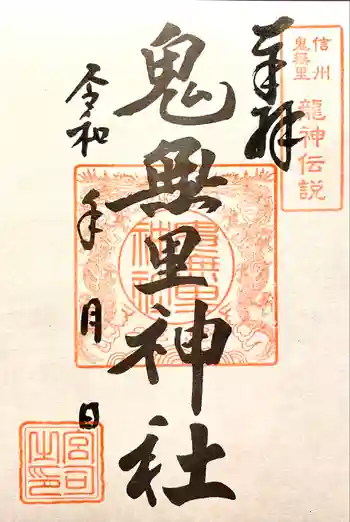 信州
鬼無里
龍神伝説
奉拝
鬼無里神社
鬼無里
神社
令和 年 月 日
宮司
之印